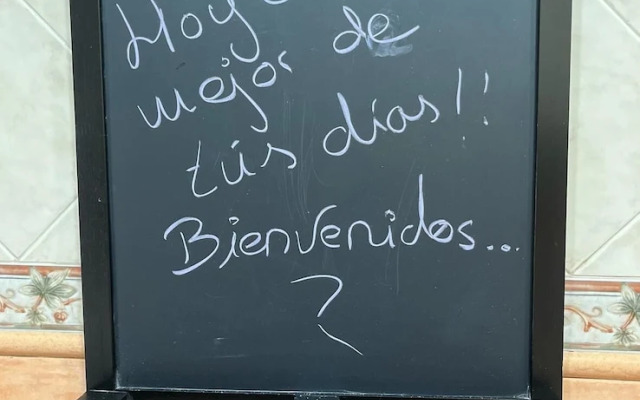 Hoy
mejor de
tús días!!
Bienvenidos...
?